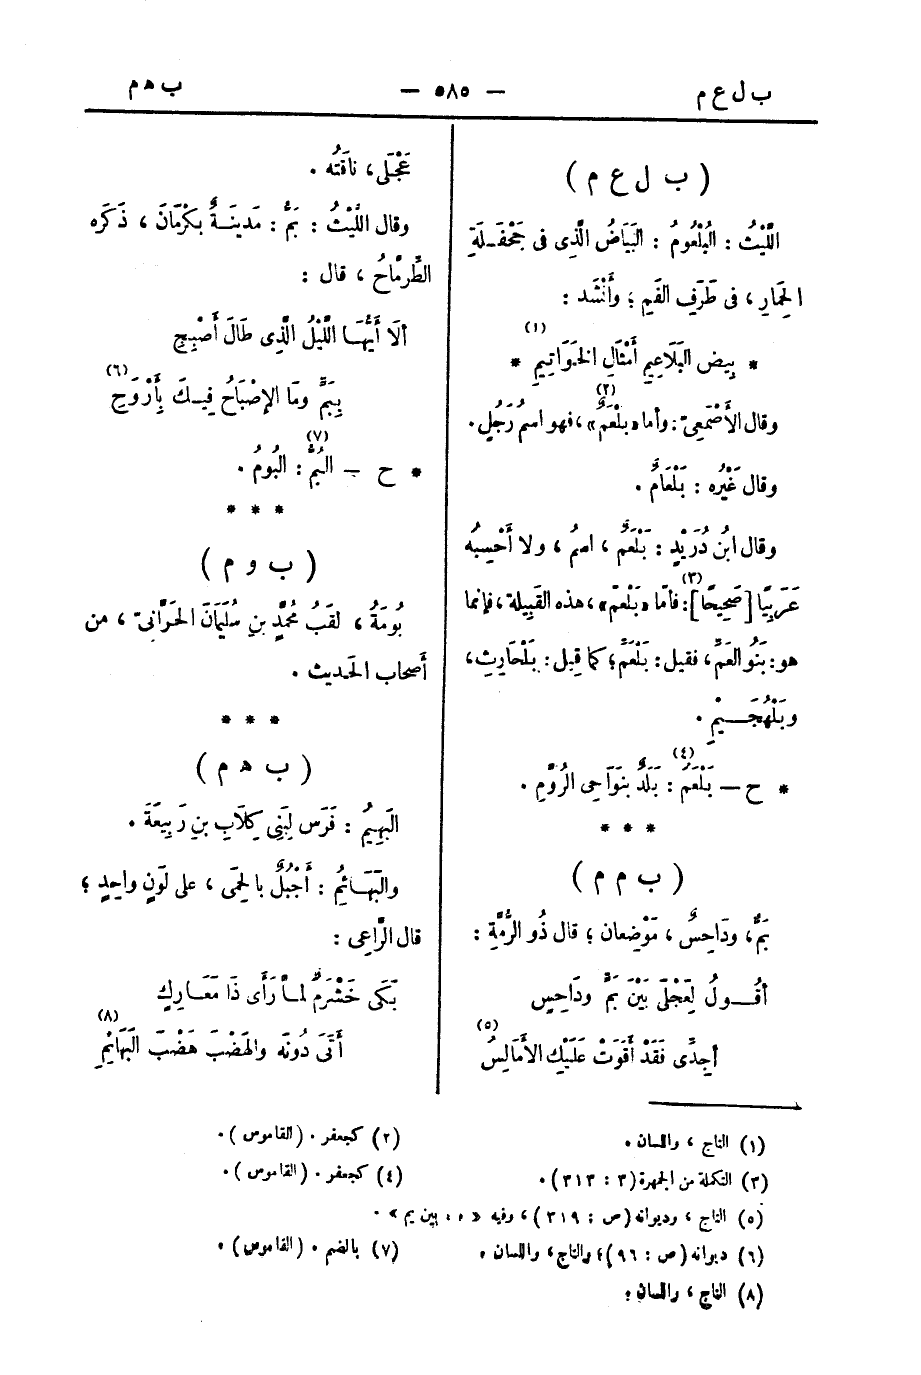 ب ل ع م
— ٥٨٥ —
ب ه م
( ب ل ع م )
اللَّيْثُ : البُلْعُومُ : البَيَاضُ الَّذِى فى جَحْفَـلَةِ
الحِمَارِ ، فى طَرَفِ الفَمِ ؛ وأَنْشَد :
* بِيض البَلَاعِيمِ أَمْثَالِ الخَوَاتِيمِ * (١)
وقال الأَصْمَعِىّ : وأما «بَلْعَمٌ» (٢) ، فهو اسمُ رَجُلٍ .
وقال غَيْرُه : بَلْعَامٌ .
وقال ابنُ دُرَيْدٍ : بَلْعَمٌ ، اسمٌ ، ولا أَحْسِبُه
عَرَبِيًّا [صَحِيحًا] (٣) : فأمّا «بَلْعَمّ» ، هذه القَبِيلة ، فإنما
هو : بَنُو العَمِّ ، فقيل : بَلْعَمّ ؛ كما قِيل : بَلْحَارِثِ ،
وبَلْهُجَـــيْمِ .
* ح — بَلْعَمُ (٤) : بَلَدٌ بنَوَاحِى الرُّومِ .
* * *
( ب م م )
بَمٌّ ، ودَاحِسٌ ، مَوْضِعان ؛ قال ذُو الرُّمَّةِ :
أقُــولُ لِعَجْلَى بَيْنَ بَمٍّ ودَاحِسٍ
أجِدِّى فَقَدْ أقَوَتْ عَلَيْكِ الأَمَالِسُ (٥)
عَجْلَى ، ناقَتُه .
وقال اللَّيْثُ : بَمُّ : مَدينَـةٌ بكَرْمَانَ ، ذَكَره
الطِّرِمَّاحُ ، قال :
ألَا أَيُّهَـا اللَّيْلُ الَّذِى طَالَ أَصْبِحِ
بِبَمَّ ومَا الإصْبَاحُ فِيـكَ بِأَرْوَحِ (٦)
* ح — البُمُّ (٧) : البُومُ .
* * *
( ب و م )
بُومَةُ ، لقَبُ مُحمَّدِ بنِ سُلَيْمَانَ الحَرَّانِىّ ، من
أَصحاب الحَديث .
* * *
( ب ه م )
البَهِيمُ : فَرَس لِبَنِى كِلَابِ بنِ رَبِيعَةَ .
والبَهَـائِمُ : أَجْبُلٌ بالحِمَى ، على لَوْنٍ واحِدٍ ؛
قال الرَّاعِى :
بَكَى خَشْرَمٌ لمـاّ رَأَى ذَا مَعَـارِكٍ
أَتَى دُونَه والهَضْبَ هَضْبَ البَهَائِمِ (٨)
(١) التاج ، واللسان .
(٢) كجعفر . (القاموس) .
(٣) التكملة من الجمهرة (٣ : ٣١٣) .
(٤) كجعفر . (القاموس) .
(٥) التاج ، وديوانه (ص : ٣١٩) ، وفيه « ... بين يم » .
(٦) ديوانه (ص : ٩٦) ؛ والتاج ، واللسان .
(٧) بالضم . (القاموس) .
(٨) التاج ، واللسان :